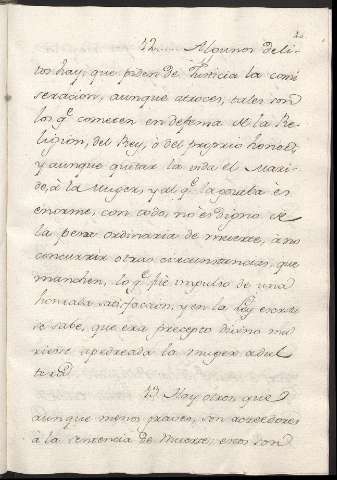 12. Algunos deli-
tos hay, que piden de Justicia la comi
seracion, aunque atroces, tales son
los q.e cometen en defensa de la Re-
ligion, del Rey, ò del proprio honor,
y aunque quitar la vida el Mari-
do, à la Muger, y al q.e la gozaba es
enorme, con todo, no es digno de
la pena ordinaria de muerte, à no
concurrir otras circunstancias, que
manchen, lo q.e fue impulso de una
honrada satisfaccion, y en la Ley escrita
se sabe, que era precepto divino mu
riese apedreada la muger adul
tera.
13. Hay otros que
aunque menos graves, son acreedores
à la sentencia de Muerte; estos son